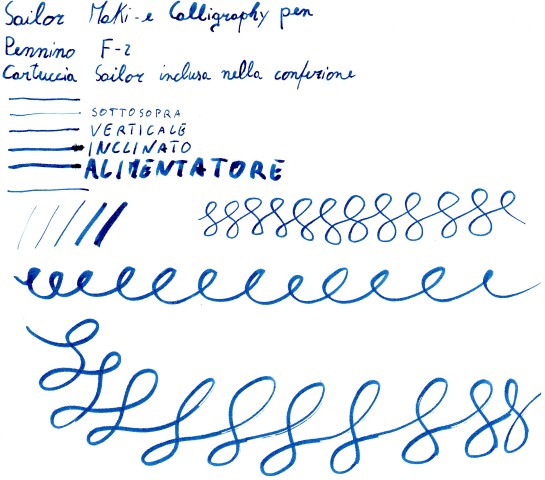 Sailor MaKi-e Calligraphy pen
Pennino F-2
Cartuccia Sailor inclusa nella confezione
SOTTOSOPRA
VERTICALE
INCLINATO
ALIMENTATORE